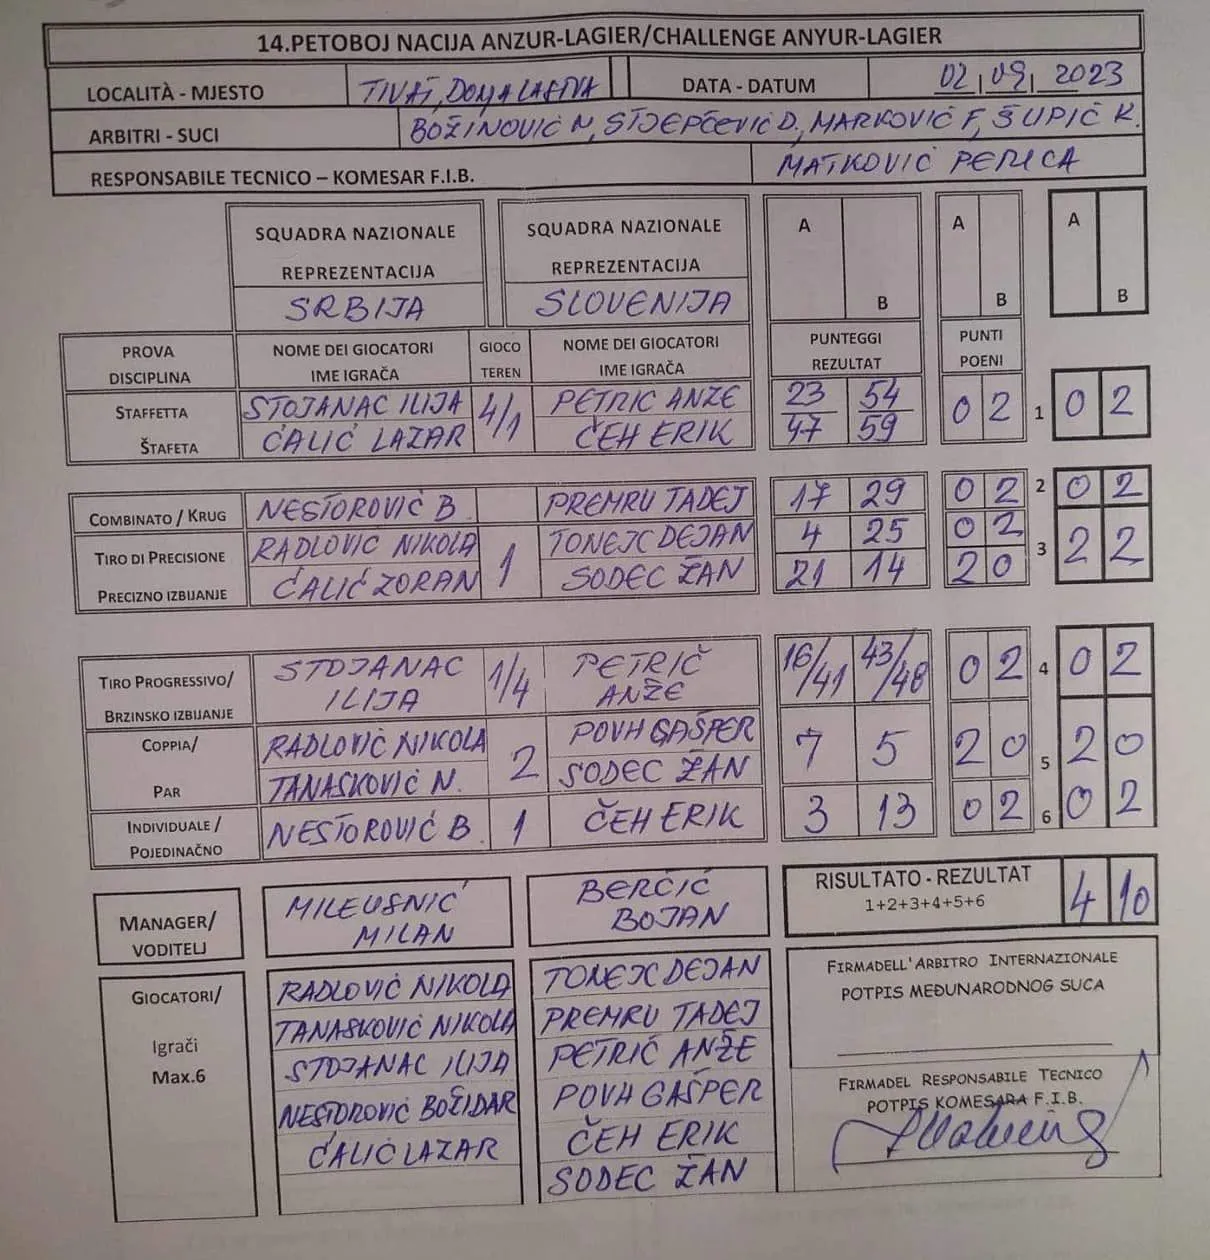 14.PETOBOJ NACIJA ANZUR-LAGIER/CHALLENGE ANYUR-LAGIER
LOCALITÀ - MJESTO TIVAT, DONJA LASTVA DATA - DATUM 02|09|2023
ARBITRI - SUCI BOŽINOVIĆ N, STJEPČEVIĆ D., MARKOVIĆ F, ŠUPIĆ K.
RESPONSABILE TECNICO – KOMESAR F.I.B. MATKOVIĆ PERICA
SQUADRA NAZIONALE SQUADRA NAZIONALE A A A
REPREZENTACIJA REPREZENTACIJA
SRBIJA SLOVENIJA B B B
PROVA NOME DEI GIOCATORI GIOCO NOME DEI GIOCATORI PUNTEGGI PUNTI
DISCIPLINA IME IGRAČA TEREN IME IGRAČA REZULTAT POENI
STAFFETTA STOJANAC ILIJA 4/1 PETRIC ANŽE 23 54 0 2 1 0 2
ŠTAFETA ĆALIĆ LAZAR ČEH ERIK 47 59
COMBINATO / KRUG NESTOROVIĆ B PREMRU TADEJ 17 29 0 2 2 0 2
TIRO DI PRECISIONE RADLOVIĆ NIKOLA 1 TONEJC DEJAN 4 25 0 2 3 2 2
PRECIZNO IZBIJANJE ĆALIĆ ZORAN SODEC ŽAN 21 14 2 0
TIRO PROGRESSIVO/ STOJANAC 1/4 PETRIČ 16/41 43/48 0 2 4 0 2
BRZINSKO IZBIJANJE ILIJA ANŽE
COPPIA/ RADLOVIĆ NIKOLA 2 POVH GAŠPER 7 5 2 0 5 2 0
PAR TANASKOVIĆ N. SODEC ŽAN
INDIVIDUALE / NESTOROVIĆ B. 1 ČEH ERIK 3 13 0 2 6 0 2
POJEDINAČNO
MANAGER/ MILEUSNIĆ BERČIČ RISULTATO - REZULTAT 4 10
VODITELJ MILAN BOJAN 1+2+3+4+5+6
GIOCATORI/ RADLOVIĆ NIKOLA TONEJC DEJAN FIRMADELL'ARBITRO INTERNAZIONALE
POTPIS MEĐUNARODNOG SUCA
Igrači TANASKOVIĆ NIKOLA PREMRU TADEJ
Max.6 STOJANAC ILIJA PETRIČ ANŽE
NESTOROVIĆ BOŽIDAR POVH GAŠPER FIRMADEL RESPONSABILE TECNICO
POTPIS KOMESARA F.I.B.
ĆALIĆ LAZAR ČEH ERIK
SODEC ŽAN